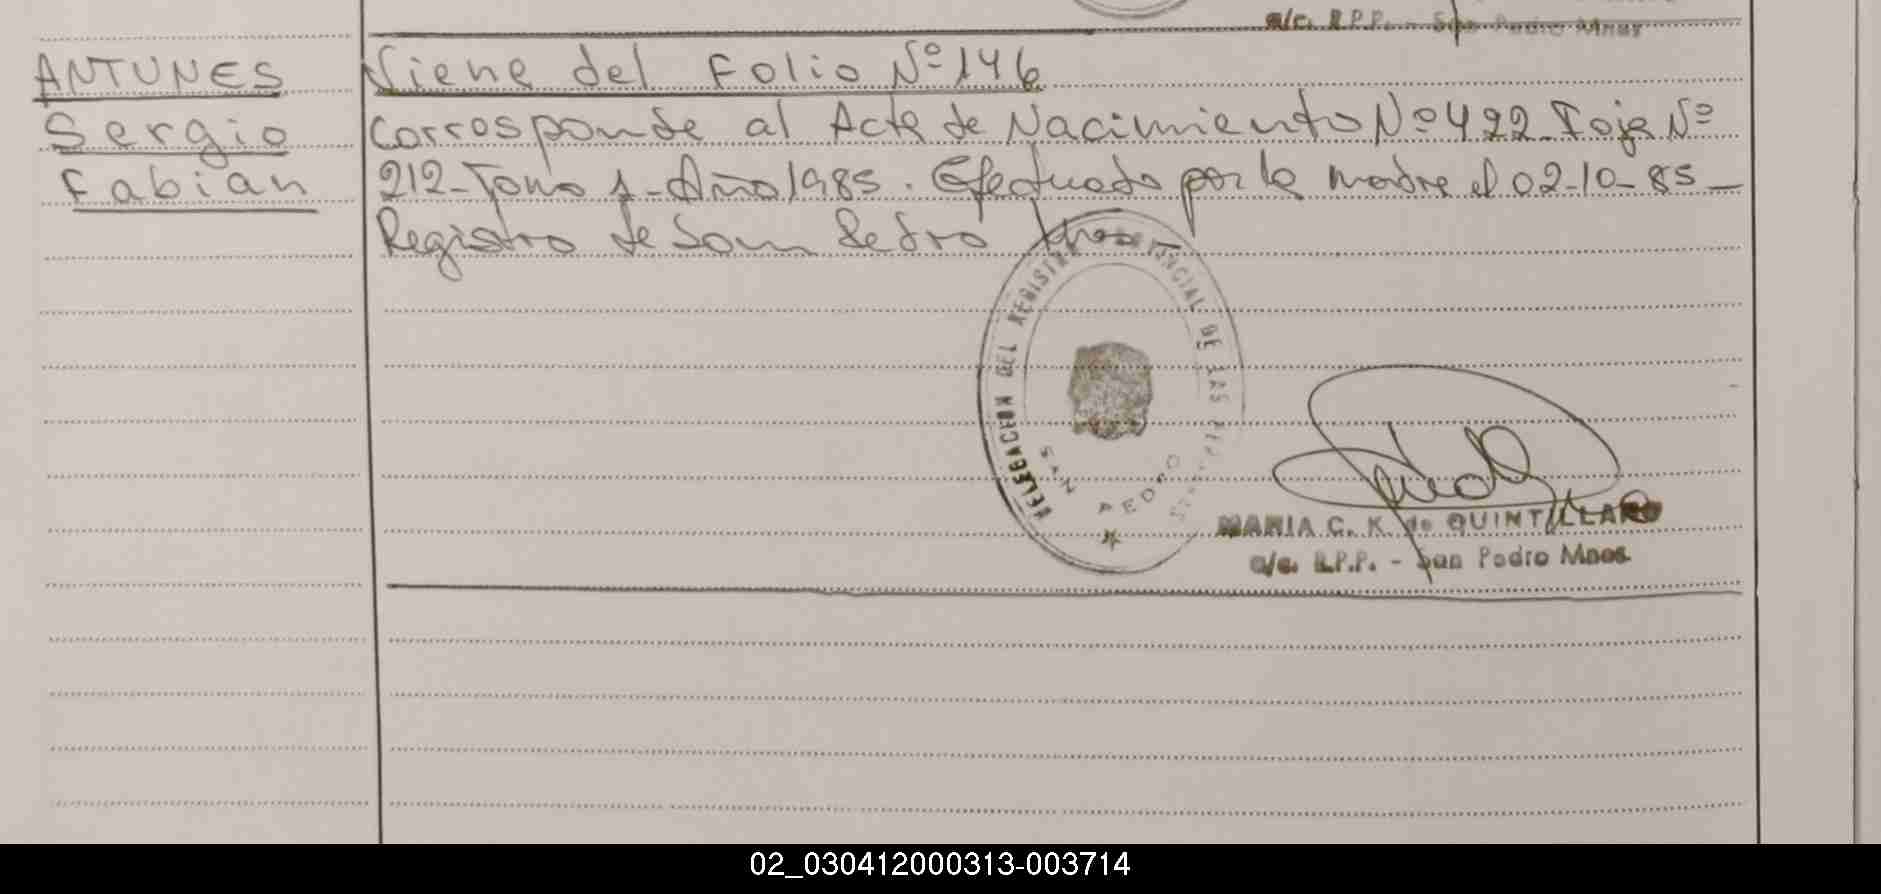 a/c. R.P.P. - San Pedro Mnes
ANTUNES
Sergio
Fabian
Viene del Folio Nº 146
Corresponde al Acta de Nacimiento Nº 422 Foja Nº
212 - Tomo 1 - Año 1985. Efectuado por la madre el 02-10-85 -
Registro de San Pedro
DELEGACION DEL REGISTRO PROVINCIAL DE LAS PERSONAS
SAN PEDRO
MARIA C. K. de QUINTILLAN
a/c. R.P.P. - San Pedro Mnes.
02_030412000313-003714